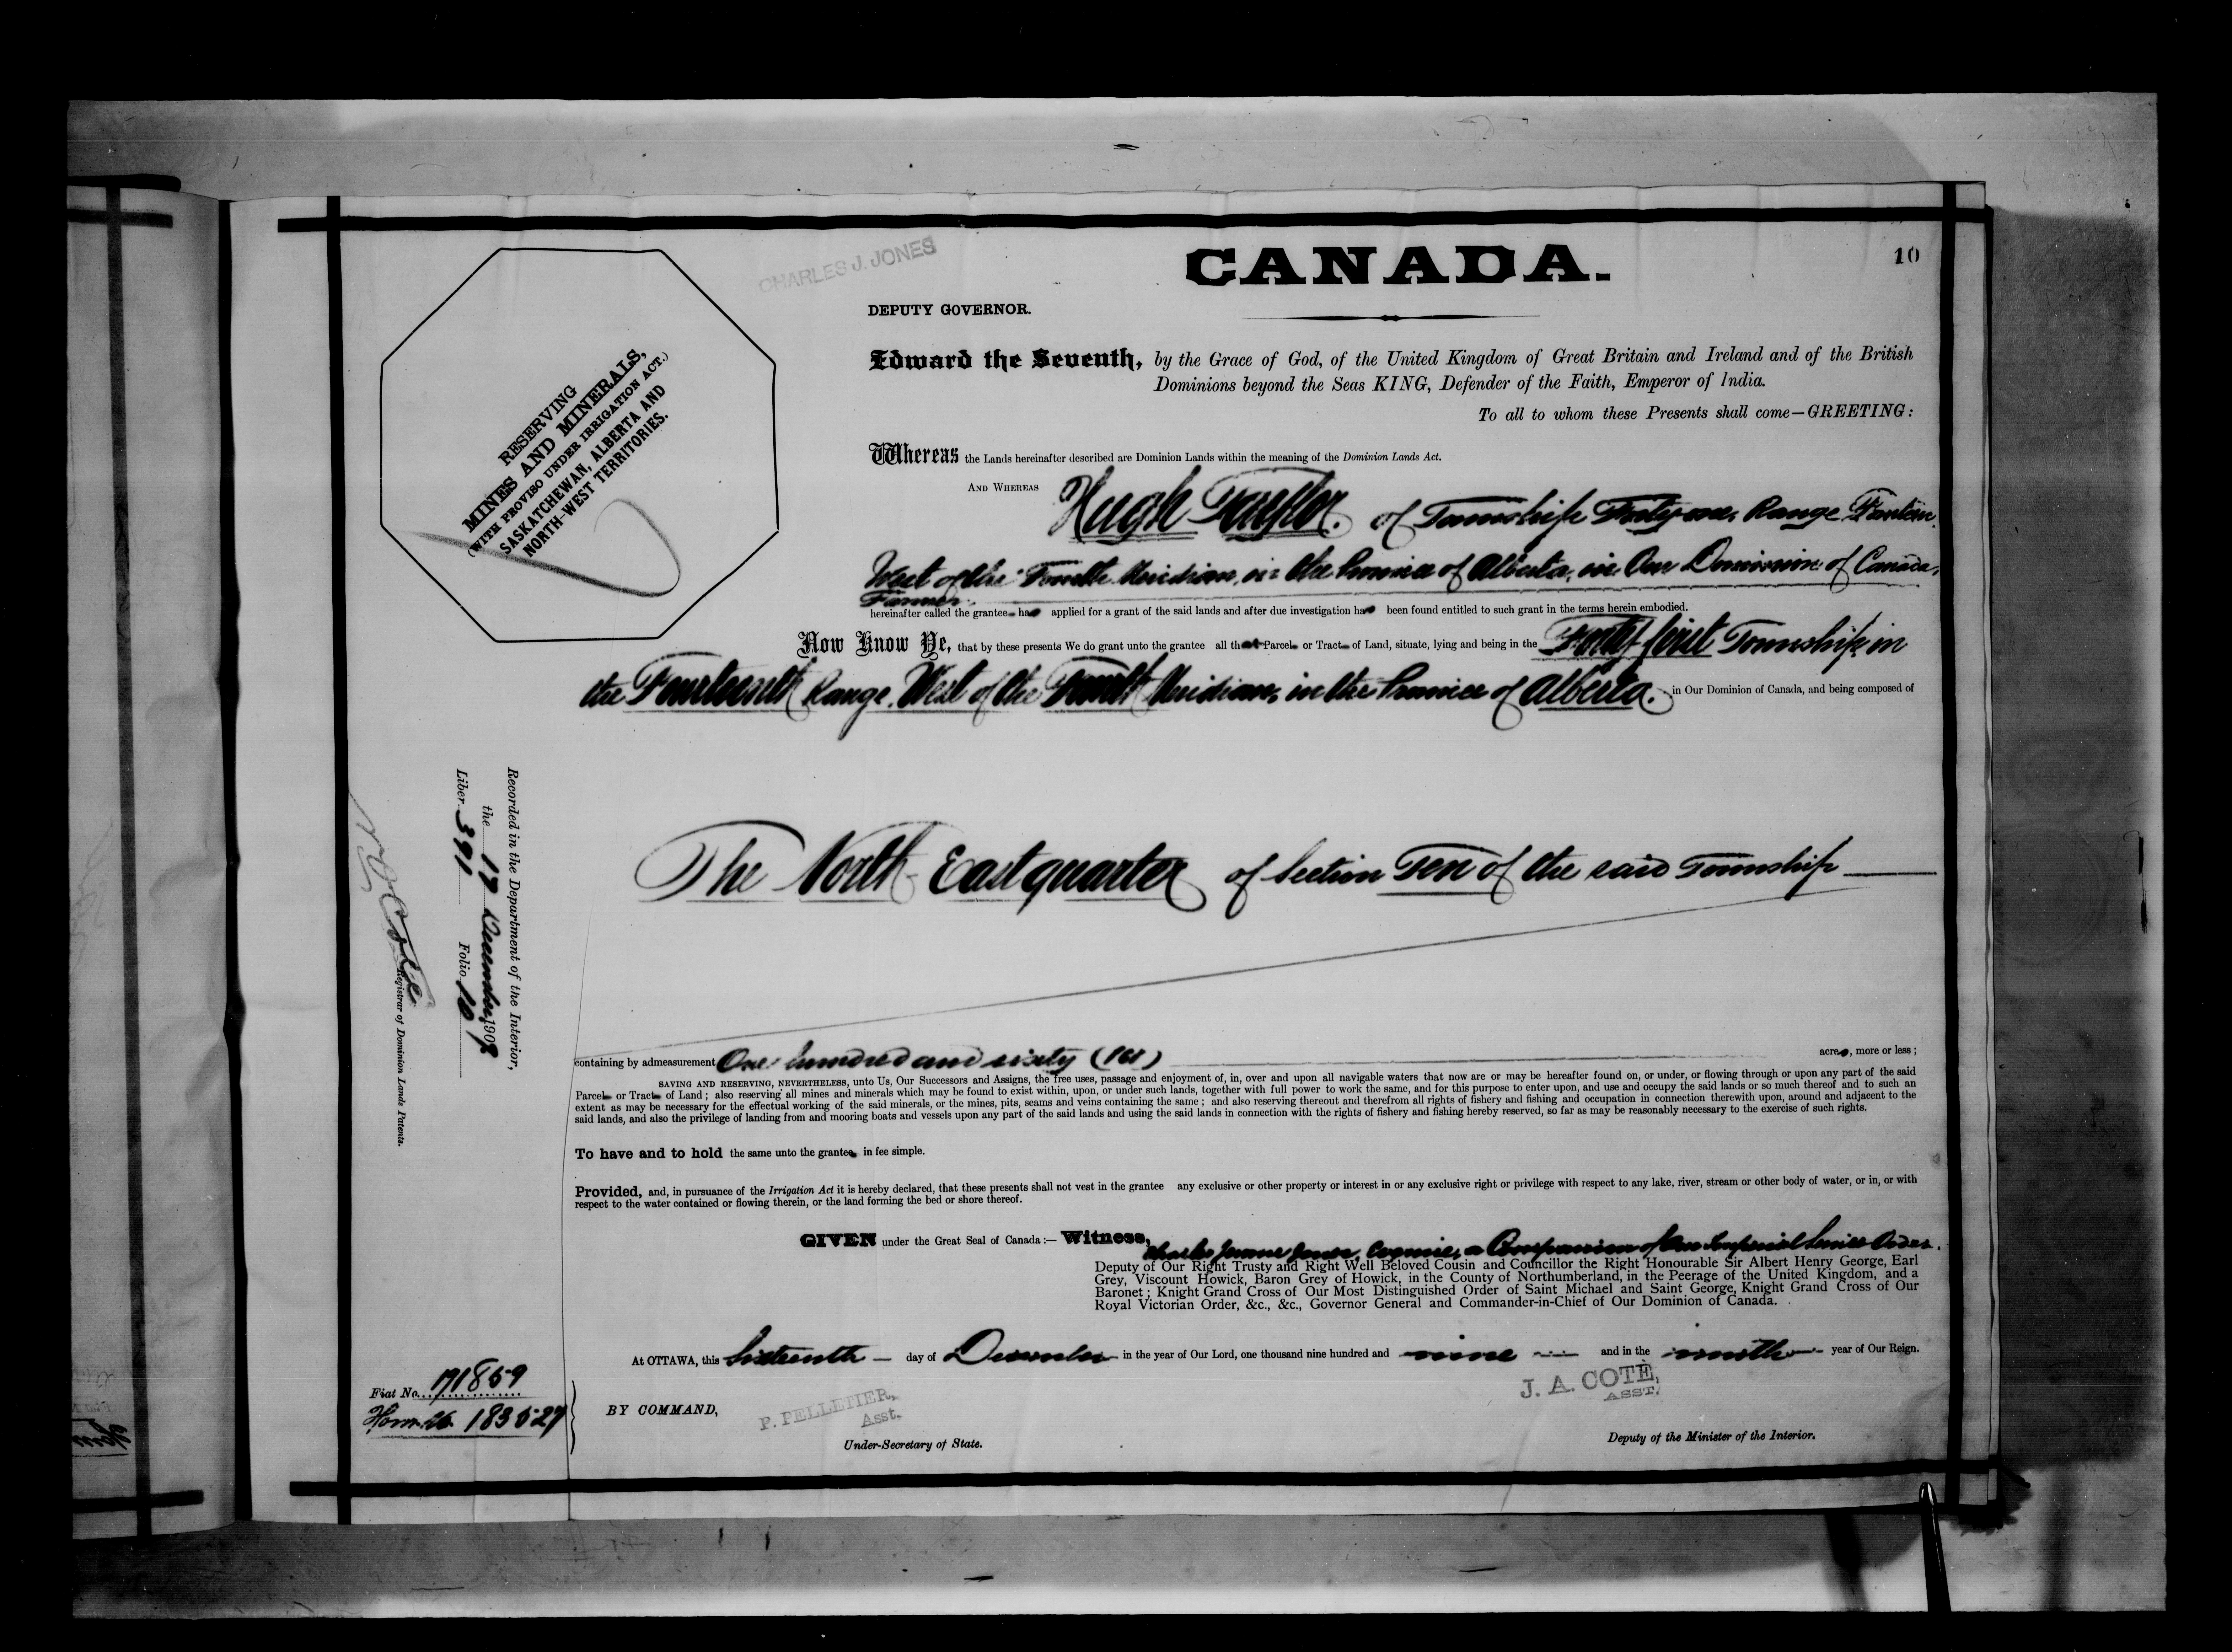 10
CHARLES J. JONES
CANADA.
DEPUTY GOVERNOR.
RESERVING
MINES AND MINERALS,
(WITH PROVISO UNDER IRRIGATION ACT.)
SASKATCHEWAN, ALBERTA AND
NORTH-WEST TERRITORIES.
Edward the Seventh, by the Grace of God, of the United Kingdom of Great Britain and Ireland and of the British
Dominions beyond the Seas KING, Defender of the Faith, Emperor of India.
To all to whom these Presents shall come—GREETING:
Whereas the Lands hereinafter described are Dominion Lands within the meaning of the Dominion Lands Act.
AND WHEREAS Hugh Taylor. of Township Forty-one, Range
West of the Fourth Meridian, in the Province of Alberta, in Our Dominion of Canada,
Farmer
hereinafter called the grantee has applied for a grant of the said lands and after due investigation has been found entitled to such grant in the terms herein embodied.
Now Know Ye, that by these presents We do grant unto the grantee all that Parcel or Tract of Land, situate, lying and being in the Forty-first Township in
the Fourteenth Range, West of the Fourth Meridian, in the Province of Alberta. in Our Dominion of Canada, and being composed of
The North-East quarter of Section Ten of the said Township
containing by admeasurement One hundred and sixty (160) acres, more or less ;
SAVING AND RESERVING, NEVERTHELESS, unto Us, Our Successors and Assigns, the free uses, passage and enjoyment of, in, over and upon all navigable waters that now are or may be hereafter found on, or under, or flowing through or upon any part of the said
Parcel or Tract of Land ; also reserving all mines and minerals which may be found to exist within, upon, or under such lands, together with full power to work the same, and for this purpose to enter upon, and use and occupy the said lands or so much thereof and to such an
extent as may be necessary for the effectual working of the said minerals, or the mines, pits, seams and veins containing the same ; and also reserving thereout and therefrom all rights of fishery and fishing and occupation in connection therewith upon, around and adjacent to the
said lands, and also the privilege of landing from and mooring boats and vessels upon any part of the said lands and using the said lands in connection with the rights of fishery and fishing hereby reserved, so far as may be reasonably necessary to the exercise of such rights.
To have and to hold the same unto the grantee in fee simple.
Provided, and, in pursuance of the Irrigation Act it is hereby declared, that these presents shall not vest in the grantee any exclusive or other property or interest in or any exclusive right or privilege with respect to any lake, river, stream or other body of water, or in, or with
respect to the water contained or flowing therein, or the land forming the bed or shore thereof.
GIVEN under the Great Seal of Canada :— Witness, Charles Jones, Esquire, a Companion of Our Imperial Service Order.
Deputy of Our Right Trusty and Right Well Beloved Cousin and Councillor the Right Honourable Sir Albert Henry George, Earl
Grey, Viscount Howick, Baron Grey of Howick, in the County of Northumberland, in the Peerage of the United Kingdom, and a
Baronet ; Knight Grand Cross of Our Most Distinguished Order of Saint Michael and Saint George, Knight Grand Cross of Our
Royal Victorian Order, &c., &c., Governor General and Commander-in-Chief of Our Dominion of Canada.
At OTTAWA, this Sixteenth day of December in the year of Our Lord, one thousand nine hundred and nine and in the ninth year of Our Reign.
J. A. COTÉ,
ASST.
BY COMMAND,
P. PELLETIER,
Asst.
Under-Secretary of State.
Deputy of the Minister of the Interior.
Recorded in the Department of the Interior,
the 17 December 1909
Liber 391 Folio 10
Registrar of Dominion Lands Patents.
Fiat No. 171859
183527